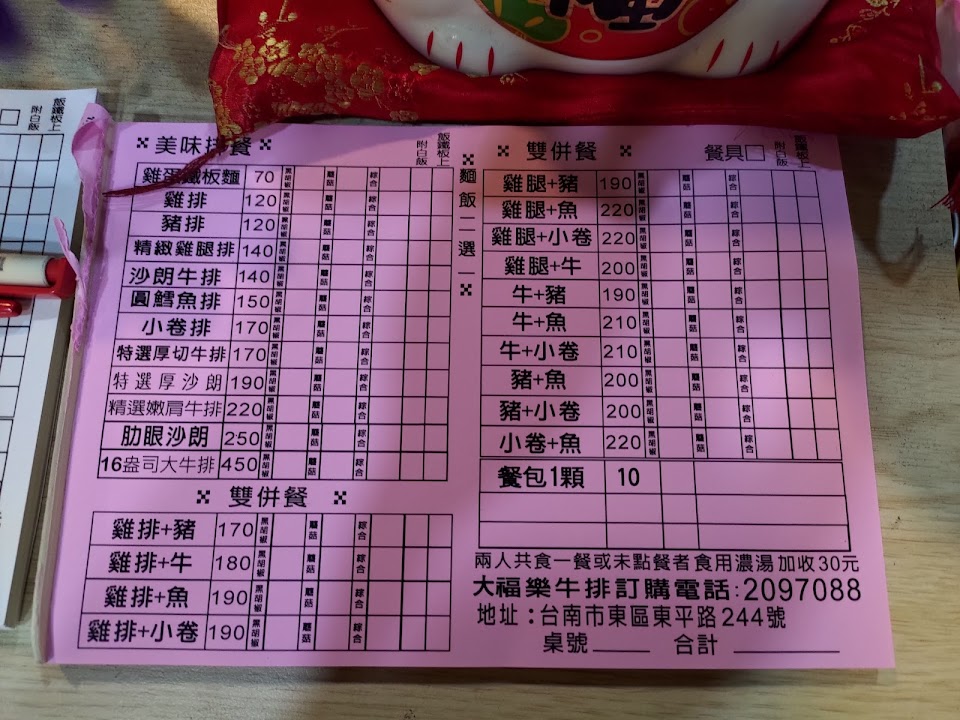 美味排餐
附白飯
飯鐵板上
雞蛋鐵板麵 70 黑胡椒 蘑菇 綜合
雞排 120 黑胡椒 蘑菇 綜合
豬排 120 黑胡椒 蘑菇 綜合
精緻雞腿排 140 黑胡椒 蘑菇 綜合
沙朗牛排 140 黑胡椒 蘑菇 綜合
圓鱈魚排 150 黑胡椒 蘑菇 綜合
小卷排 170 黑胡椒 蘑菇 綜合
特選厚切牛排 170 黑胡椒 蘑菇 綜合
特選厚沙朗 190 黑胡椒 蘑菇 綜合
精選嫩肩牛排 220 黑胡椒 蘑菇 綜合
肋眼沙朗 250 黑胡椒 蘑菇 綜合
16盎司大牛排 450 黑胡椒 蘑菇 綜合
雙併餐
雞排+豬 170 黑胡椒 蘑菇 綜合
雞排+牛 180 黑胡椒 蘑菇 綜合
雞排+魚 190 黑胡椒 蘑菇 綜合
雞排+小卷 190 黑胡椒 蘑菇 綜合
麵飯二選一
雙併餐
餐具□
附白飯
飯鐵板上
雞腿+豬 190 黑胡椒 蘑菇 綜合
雞腿+魚 220 黑胡椒 蘑菇 綜合
雞腿+小卷 220 黑胡椒 蘑菇 綜合
雞腿+牛 200 黑胡椒 蘑菇 綜合
牛+豬 190 黑胡椒 蘑菇 綜合
牛+魚 210 黑胡椒 蘑菇 綜合
牛+小卷 210 黑胡椒 蘑菇 綜合
豬+魚 200 黑胡椒 蘑菇 綜合
豬+小卷 200 黑胡椒 蘑菇 綜合
小卷+魚 220 黑胡椒 蘑菇 綜合
餐包1顆 10
兩人共食一餐或未點餐者食用濃湯加收30元
大福樂牛排訂購電話:2097088
地址:台南市東區東平路244號
桌號_____ 合計_________
附白飯
飯鐵板上